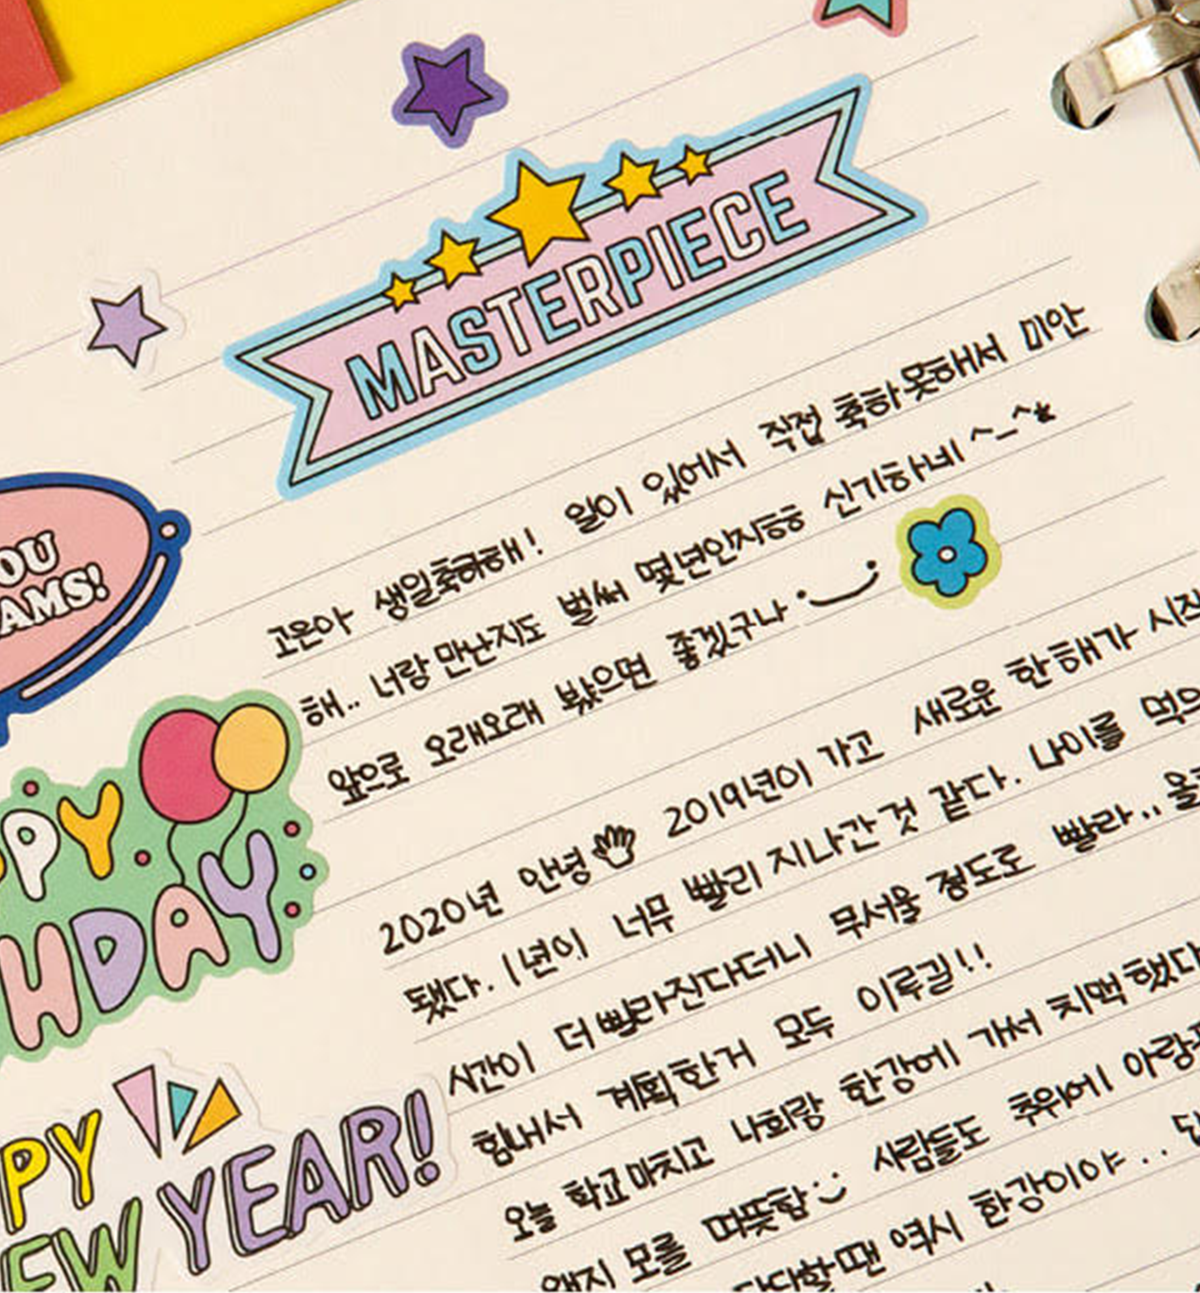 MASTERPIECE
고운아 생일축하해! 일이 있어서 직접 축하못해서 미안
해.. 너랑 만난지도 벌써 몇년인지 신기하네 ^_^
앞으로 오래오래 봤으면 좋겠구나
OU
AMS!
PPY
HDAY
2020년 안녕 2019년이 가고 새로운 한해가 시작
됐다. 1년이 너무 빨리 지나간것 같다. 나이를 먹으
시간이 더 빨라진다더니 무서울 정도로 빨라.. 올
힘내서 계획한거 모두 이루길!!
오늘 학교마치고 나희랑 한강에 가서 치맥했다
왠지 모를 따뜻함 사람들도 추위에 아랑
답답할땐 역시 한강이야..
PPY
EW YEAR!